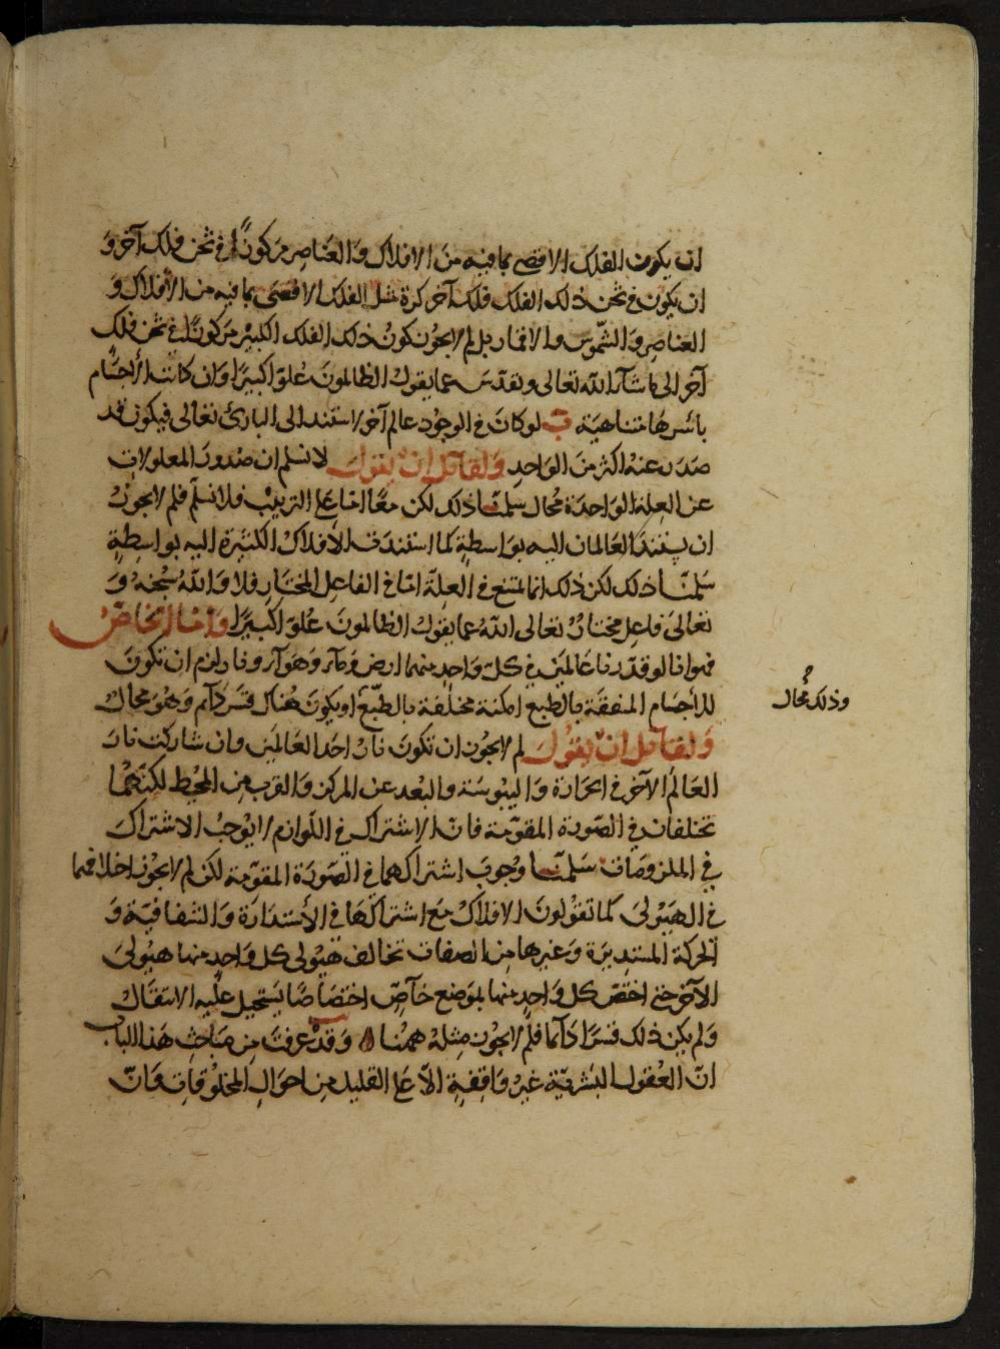 ان يكون الفلك الاقصى بما فيه من الافلاك والعناصر مركوزًا في ثخن فلك آخر و
ان يكون في ثخن ذلك الفلك فلك آخر كرة مثل الفلك الاقصى بما فيه من الأفلاك و
العناصر والشموس والاقمار بل لم لا يجوز كون ذلك الفلك الكبير مركوزًا في ثخن فلك
آخر الى ما شآء الله تعالى وتقدس عما يقول الظالمون علوّا كبيرًا وان كانت الأجسام
بأسرها متناهية ب لو كان في الوجود عالم آخر لاستند الى البارئ تعالى فيكون قد
صدر عنه اكثر من الواحد ولقائل ان يقول لا نسلم ان صدور المعلولات
عن العلة الواحدة محال سلمنا ذلك لكن معًا اما على الترتيب فلا نسلم فلم لا يجوز
ان يستند العالمان اليه بواسطة كما استندت الأفلاك الكثيرة اليه بواسطة
سلمنا ذلك لكن ذلك انما يمتنع في العلة اما في الفاعل المختار فلا والله سبحنه و
تعالى فاعل مختار تعالى الله عما يقول الظالمون علوّا كبيرًا وأما الخاص
فهو انا لو قدرنا عالمين في كل واحد منهما ارض وماء وهوآء ونار لزم ان تكون
للأجسام المتفقة بالطبع امكنة مختلفة بالطبع او يكون هناك قسر دآئم وهو محال
وذلك محال
ولقائل ان يقول لم لا يجوز ان تكون نار احد العالمين وان شاركت نار
العالم الآخر في الحرارة واليبوسة والبعد عن المركز والقرب من المحيط لكنهما
تختلفان في الصورة المقومة فان الاشتراك في اللوازم لا يوجب الاشتراك
في الملزومات سلمنا وجوب اشتراكهما في الصورة المقومة لكن لم لا يجوز اختلافهما
في الهيولى كما تقولون الافلاك مع اشتراكها في الأستدارة والشفافية و
الحركة المستديرة وغيرها من الصفات تخالف هيولى كل واحد منها هيولى
الآخر حتى اختص كل واحد منها بموضع خآصّ اختصاصًا يستحيل عليه الانتقال
ولم يكن ذلك قسرًا دآئما فلم لا يجوز مثله ههنا وقد عرفت من مباحث هذا الباب
انّ العقول البشرية غير واقفة الّا على القليل من احوال المخلوقات وانّ